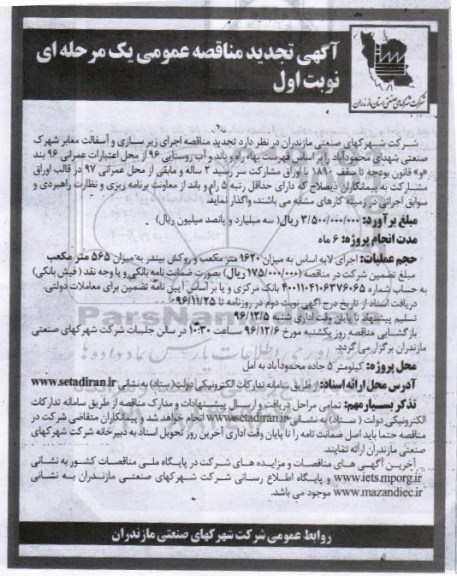 آگهی تجدید مناقصه عمومی یک مرحله ای
نوبت اول
شرکت شهرکهای صنعتی استان مازندران
شرکت شهرکهای صنعتی مازندران در نظر دارد تجدید مناقصه اجرای زیر سازی و آسفالت معابر شهرک
صنعتی شهدای محمودآباد را بر اساس فهرست بهاء راه و باند و آب روستایی ۹۶ از محل اعتبارات عمرانی ۹۶ بند
«و» قانون بودجه تا سقف ۱۸۹٪ با اوراق مشارکت سر رسید ۲ ساله و مابقی از محل عمرانی ۹۷ در قالب اوراق
مشارکت به پیمانکاران ذیصلاح که دارای حداقل رتبه ۵ راه و باند از معاونت برنامه ریزی و نظارت راهبردی و
سوابق اجرایی در زمینه کارهای مشابه می باشند، واگذار نماید.
مبلغ برآورد: ۳/۵۰۰/۰۰۰/۰۰۰ ریال( سه میلیارد و پانصد میلیون ریال)
مدت انجام پروژه: ۶ ماه
حجم عملیات: اجرای لایه اساس به میزان ۱۶۲۰ متر مکعب و روکش بیندر به میزان ۵۶۵ متر مکعب
مبلغ تضمین شرکت در مناقصه (۱۷۵/۰۰۰/۰۰۰ ریال) بصورت ضمانت نامه بانکی و یا وجه نقد ( فیش بانکی)
به حساب شماره ۴۰۰۱۱۰۴۱۰۶۳۷۶۰۶۵ بانک مرکزی و یا بر اساس آیین نامه تضمین برای معاملات دولتی.
دریافت اسناد از تاریخ درج آگهی نوبت دوم در روزنامه تا ۹۶/۱۱/۲۵
تسلیم پیشنهاد تا پایان وقت اداری شنبه ۹۶/۱۲/۵
بازگشایی مناقصه روز یکشنبه مورخ ۹۶/۱۲/۶ ساعت ۱۰:۳۰ در سالن جلسات شرکت شهرکهای صنعتی
مازندران برگزار می گردد.
محل پروژه: کیلومتر ۵ جاده محمودآباد به آمل
آدرس محل ارائه اسناد: از طریق سامانه تدارکات الکترونیکی دولت( ستاد) به نشانی www.setadiran.ir
تذکر بسیار مهم: تمامی مراحل دریافت و ارسال پیشنهادات و مدارک مناقصه از طریق سامانه تدارکات
الکترونیکی دولت ( ستاد) به نشانی www.setadiran.ir انجام خواهد شد و پیمانکاران متقاضی شرکت در
مناقصه حتما باید اصل ضمانت نامه را تا پایان وقت اداری آخرین روز تحویل اسناد به دبیرخانه شرکت شهرکهای
صنعتی مازندران ارائه نمایند.
آخرین آگهی های مناقصات و مزایده های شرکت در پایگاه ملی مناقصات کشور به نشانی
www.iets.mporg.ir و پایگاه اطلاع رسانی شرکت شهرکهای صنعتی مازندران به نشانی
www.mazandiec.ir موجود می باشد.
روابط عمومی شرکت شهرکهای صنعتی مازندران